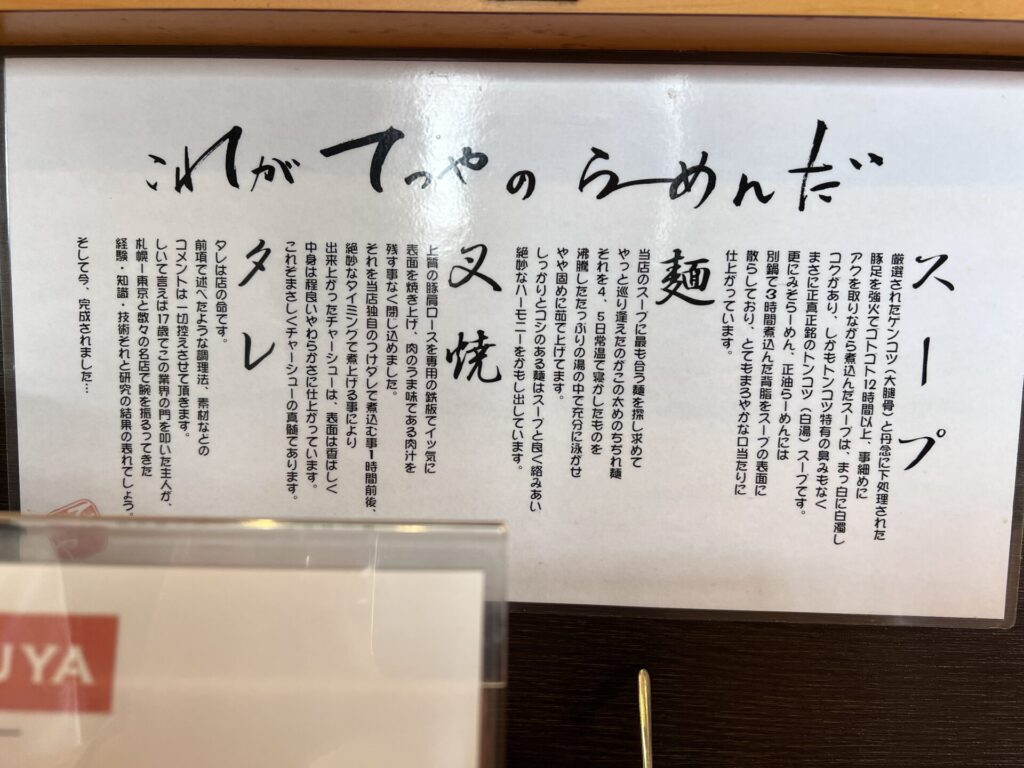 これが てつやの らーめんだ
スープ
厳選されたゲンコツ（大腿骨）と丹念に下処理された
豚足を強火でコトコト12時間以上、事細めに
アクを取りながら煮込んだスープは、まっ白に白濁し
コクがあり、しかもトンコツ特有の臭みもなく
まさに正真正銘のトンコツ（白湯）スープです。
更にみそらーめん、正油らーめんには
別鍋で3時間煮込んだ背脂をスープの表面に
散らしており、とてもまろやかな口当たりに
仕上がっています。
麺
当店のスープに最も合う麺を探し求めて
やっと巡り逢えたのがこの太めのちぢれ麺
それを4、5日常温で寝かしたものを
沸騰したたっぷりの湯の中で充分に泳がせ
やや固めに茹で上げてます。
しっかりとコシのある麺はスープと良く絡みあい
絶妙なハーモニーをかもし出しています。
叉焼
上質の豚肩ロースを専用の鉄板でイッ気に
表面を焼き上げ、肉のうま味である肉汁を
残す事なく閉じ込めました。
それを当店独自のつけタレで煮込む事1時間前後、
絶妙なタイミングで煮上げる事により
出来上がったチャーシューは、表面は香ばしく
中身は程良いやわらかさに仕上がっています。
これぞまさしくチャーシューの真髄であります。
タレ
タレは店の命です。
前項で述べたような調理法、素材などの
コメントは一切控えさせて頂きます。
しいて言えば17歳でこの業界の門を叩いた主人が、
札幌ー東京と数々の名店で腕を振るってきた
経験・知識・技術それと研究の結果の表れでしょう。
そして今、完成されました…
UYA